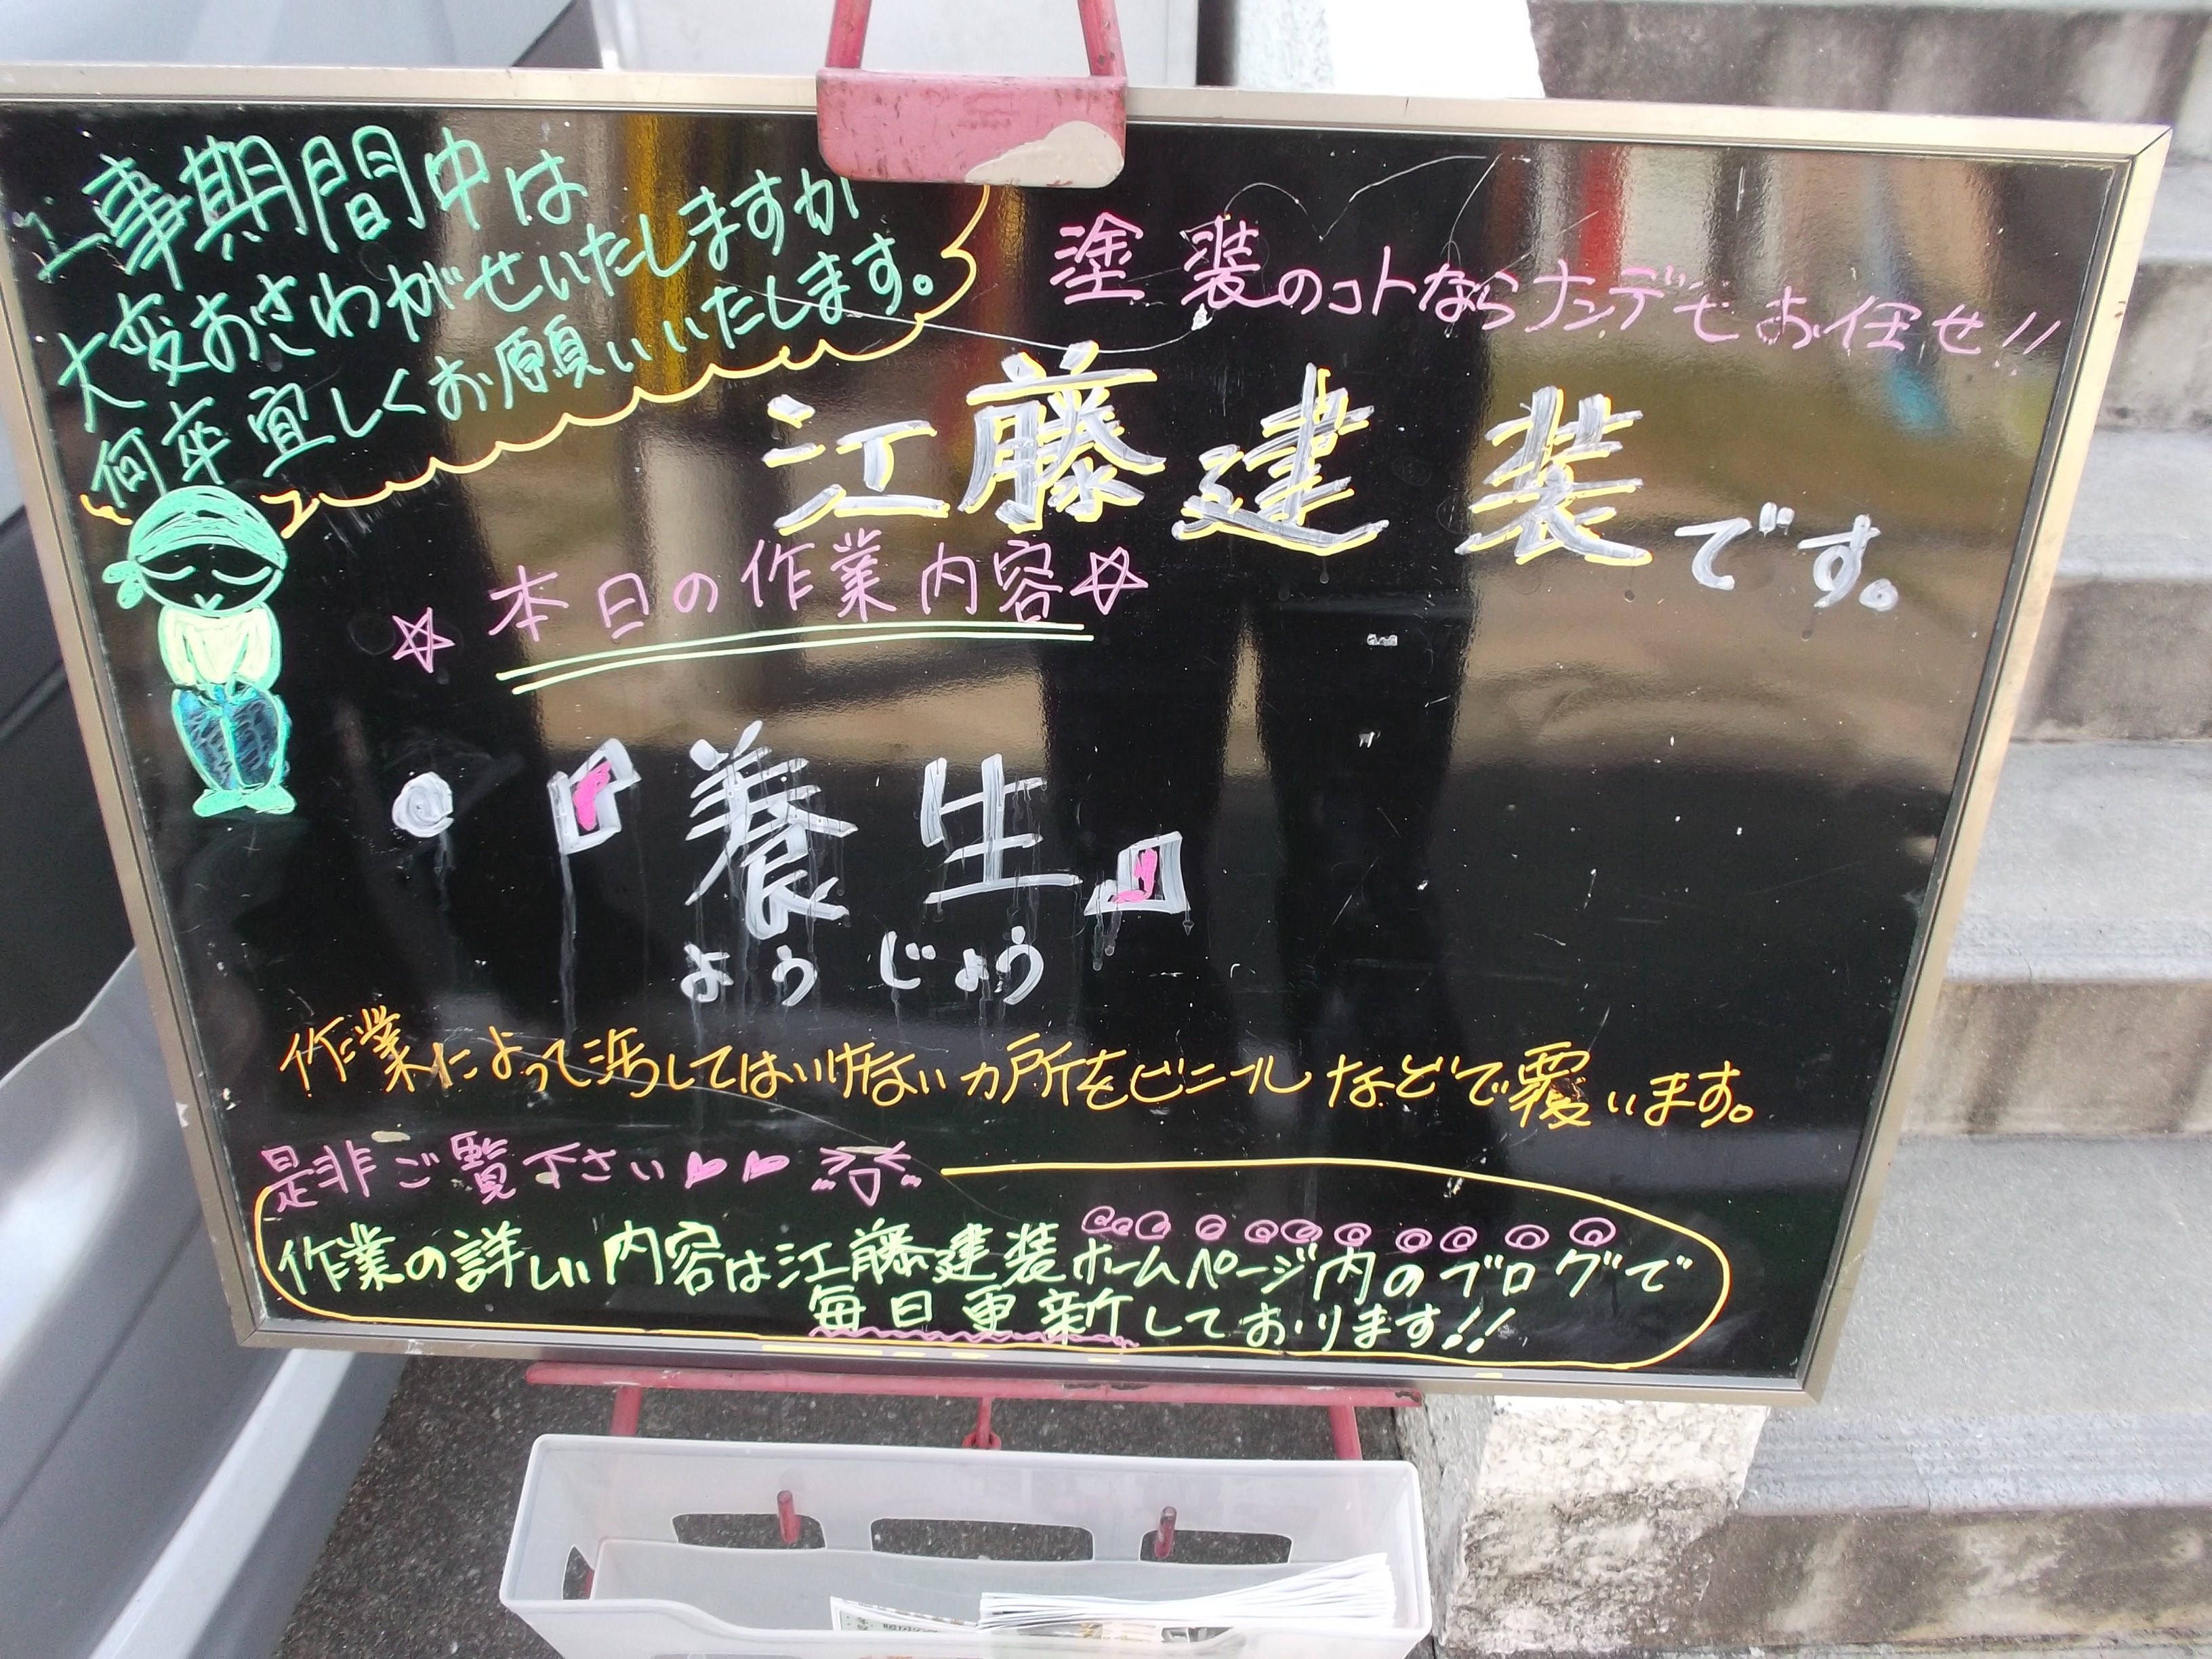 工事期間中は
大変おさわがせいたしますが
何卒宜しくお願いいたします。
塗装のコトならナンデモお任せ!!
江藤建装です。
☆本日の作業内容☆
・『養生』
ようじょう
作業によって汚してはいけないカ所をビニールなどで覆います。
是非ご覧下さい
作業の詳しい内容は江藤建装ホームページ内のブログで
毎日更新しております!!